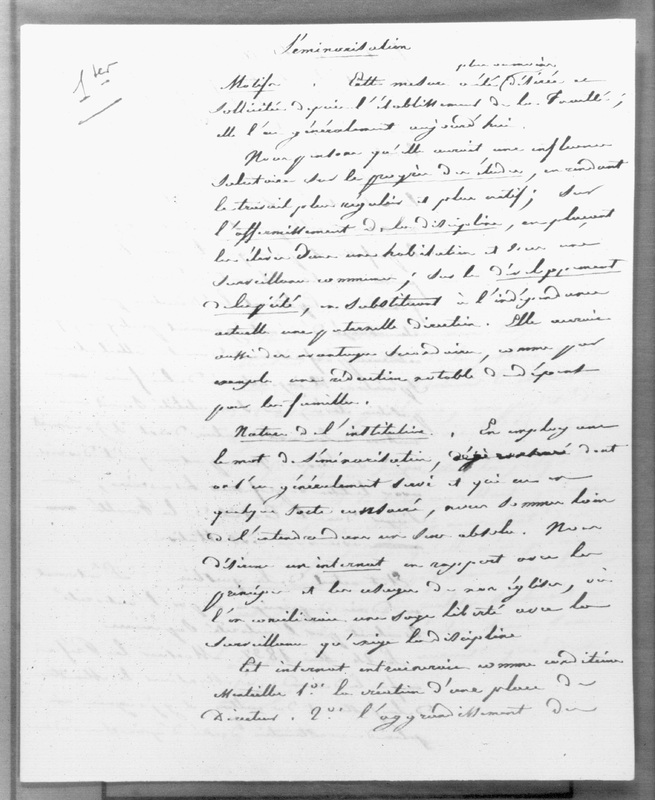 1er
Séminarisation
plus ou moins
Motifs. Cette mesure a été désirée et
sollicitée depuis l'établissement de la Faculté;
elle l'est généralement aujourd'hui.
Nous pensons qu'elle aurait une influence
salutaire sur le progrès des études, en rendant
le travail plus régulier et plus actif; sur
l'affermissement de la discipline, en plaçant
les élèves dans une habitation et sous une
surveillance commune; sur le développement
de la piété, en substituant à l'indépendance
actuelle une paternelle direction. Elle aurait
aussi des avantages secondaires, comme par
exemple une réduction notable de dépense
pour les familles.
Nature de l'institution. En employant
le mot de séminarisation, dont
on s'est généralement servi et qui est en
quelque sorte consacré, nous sommes loin
de l'entendre dans un sens absolu. Nous
désirons un internat en rapport avec les
principes et les usages de nos églises, où
l'on conciliera une sage liberté avec la
surveillance qu'exige la discipline
Cet internat nécessiterait comme conditions
1° la création d'une place de
Directeur. 2° l'aggrandissement du